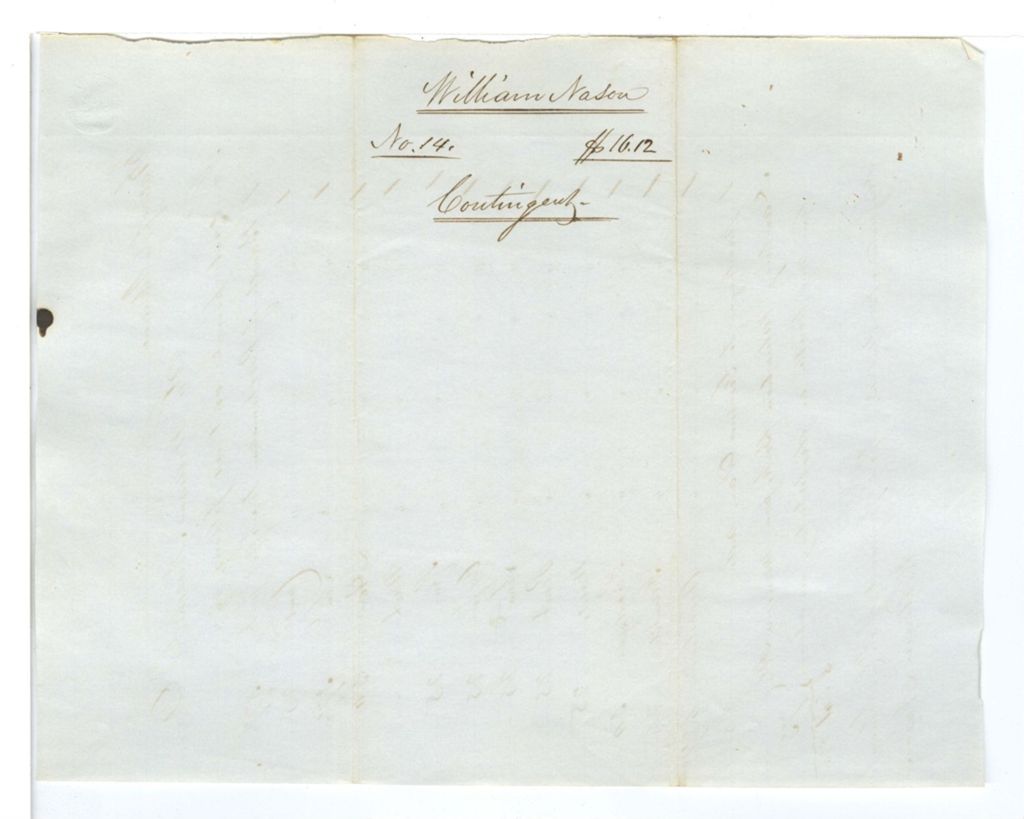 William Nason
No. 14. $16.12
Contingent